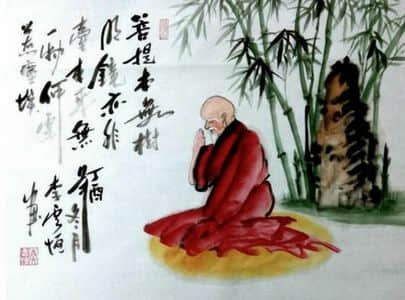 菩提本無樹
明鏡亦非
臺本來無
一物何處
惹塵埃
丁酉冬月
李雲恒